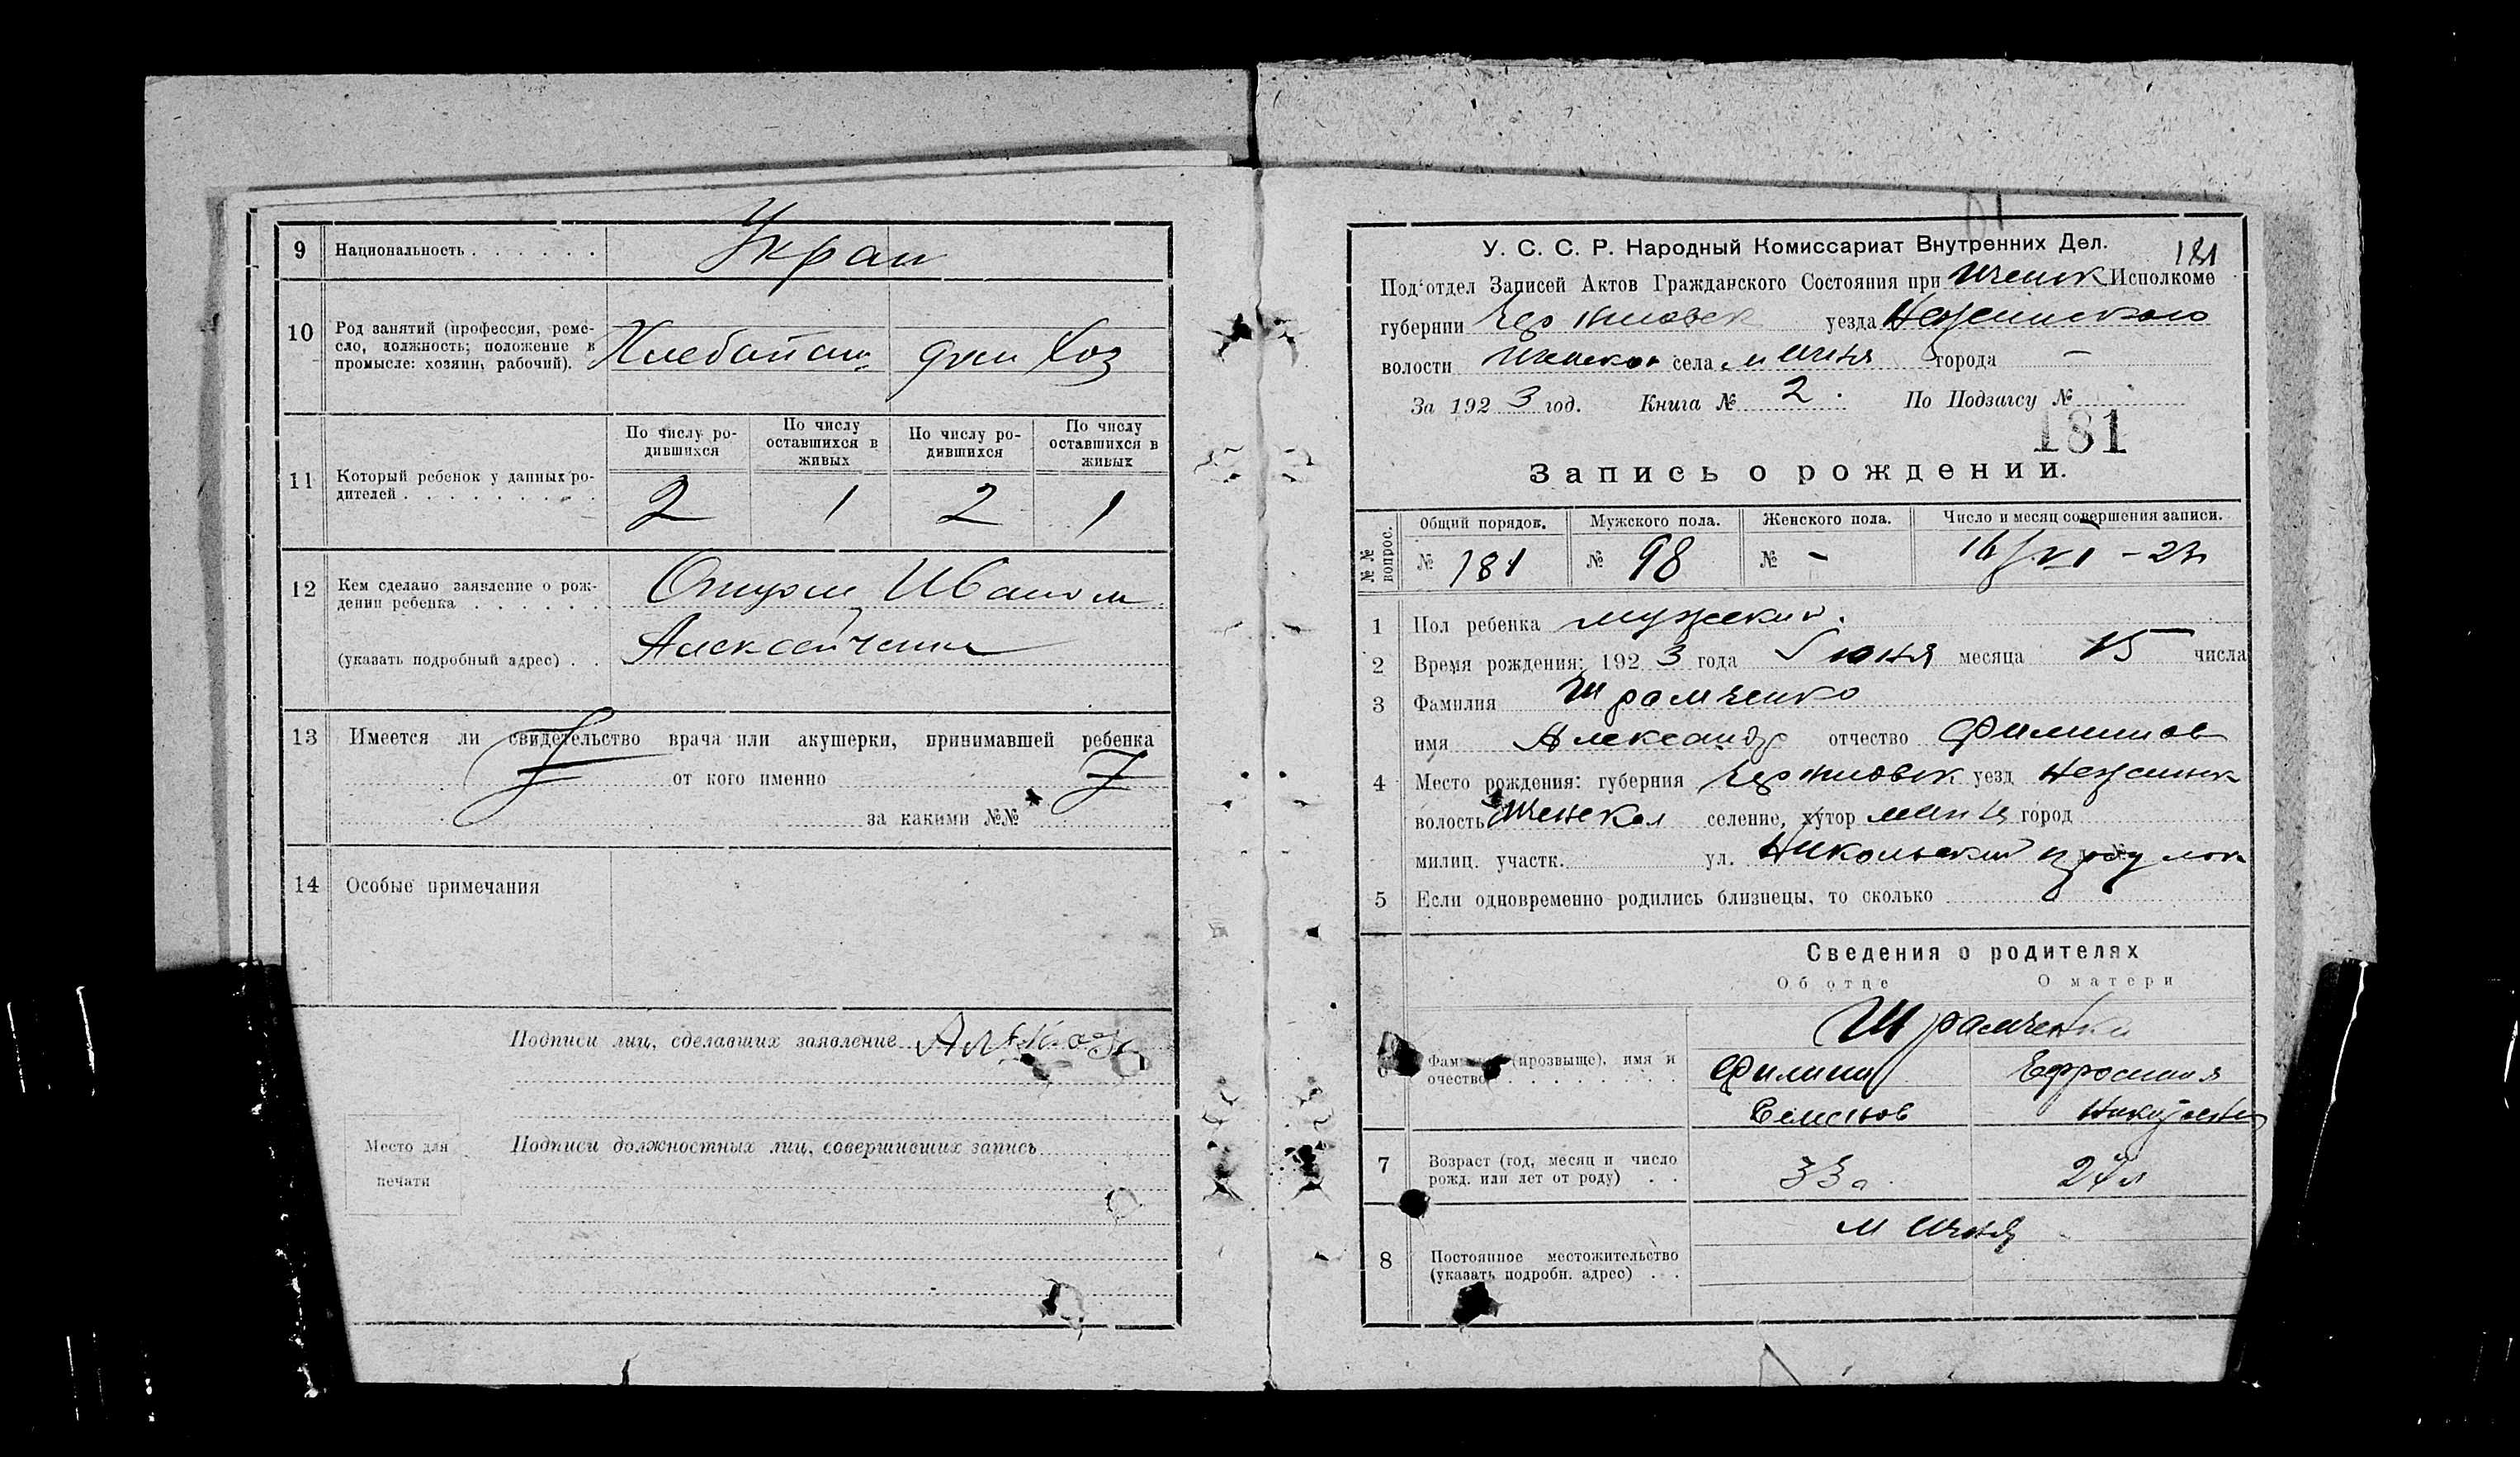 9 Национальность . . . . . . . Украи
10 Род занятий (профессия, реме-
сло, должность; положение в
промысле: хозяин, рабочий).
Хлебопаш. дом хоз
11 Который ребенок у данных ро-
дителей . . . . . . . . . .
По числу ро-
дившихся
По числу
оставшихся в
живых
По числу ро-
дившихся
По числу
оставшихся в
живых
2 1 2 1
12 Кем сделано заявление о рож-
дении ребенка . . . . . . .
Иваном
(указать подробный адрес) . .
13 Имеется ли свидетельство врача или акушерки, принимавшей ребенка
от кого именно
за какими №№
14 Особые примечания
Подписи лиц, сделавших заявление
Место для
печати
Подписи должностных лиц, совершивших запись
181
У. С. С. Р. Народный Комиссариат Внутренних Дел.
Под‘отдел Записей Актов Гражданского Состояния при Иченск Исполкоме
губернии Черниговск уезда Неженского
волости Иченской села м Ичня города —
За 1923 год. Книга № 2. По Подзагсу №
181
Запись о рождении.
№№ вопрос.
Общий порядок. Мужского пола. Женского пола. Число и месяц совершения записи.
№ 181 № 98 № - 16/VI - 23
1 Пол ребенка мужский.
2 Время рождения: 1923 года Июня месяца 15 числа
3 Фамилия Шрамченко
имя Александр отчество Филипов
4 Место рождения: губерния Черниговск уезд Неженск
волость Иченская селение, хутор город
милиц. участк. ул. Никольский
5 Если одновременно родились близнецы, то сколько
Сведения о родителях
Об отце О матери
Шрамченко
6 (прозвыще), имя и
очество . . . . . . . . .
Филипп Ефросиния
Семенов
7 Возраст (год, месяц и число
рожд. или лет от роду) . .
33 27 л
8 Постоянное местожительство
(указать подробн. адрес) . . .
м Ичня